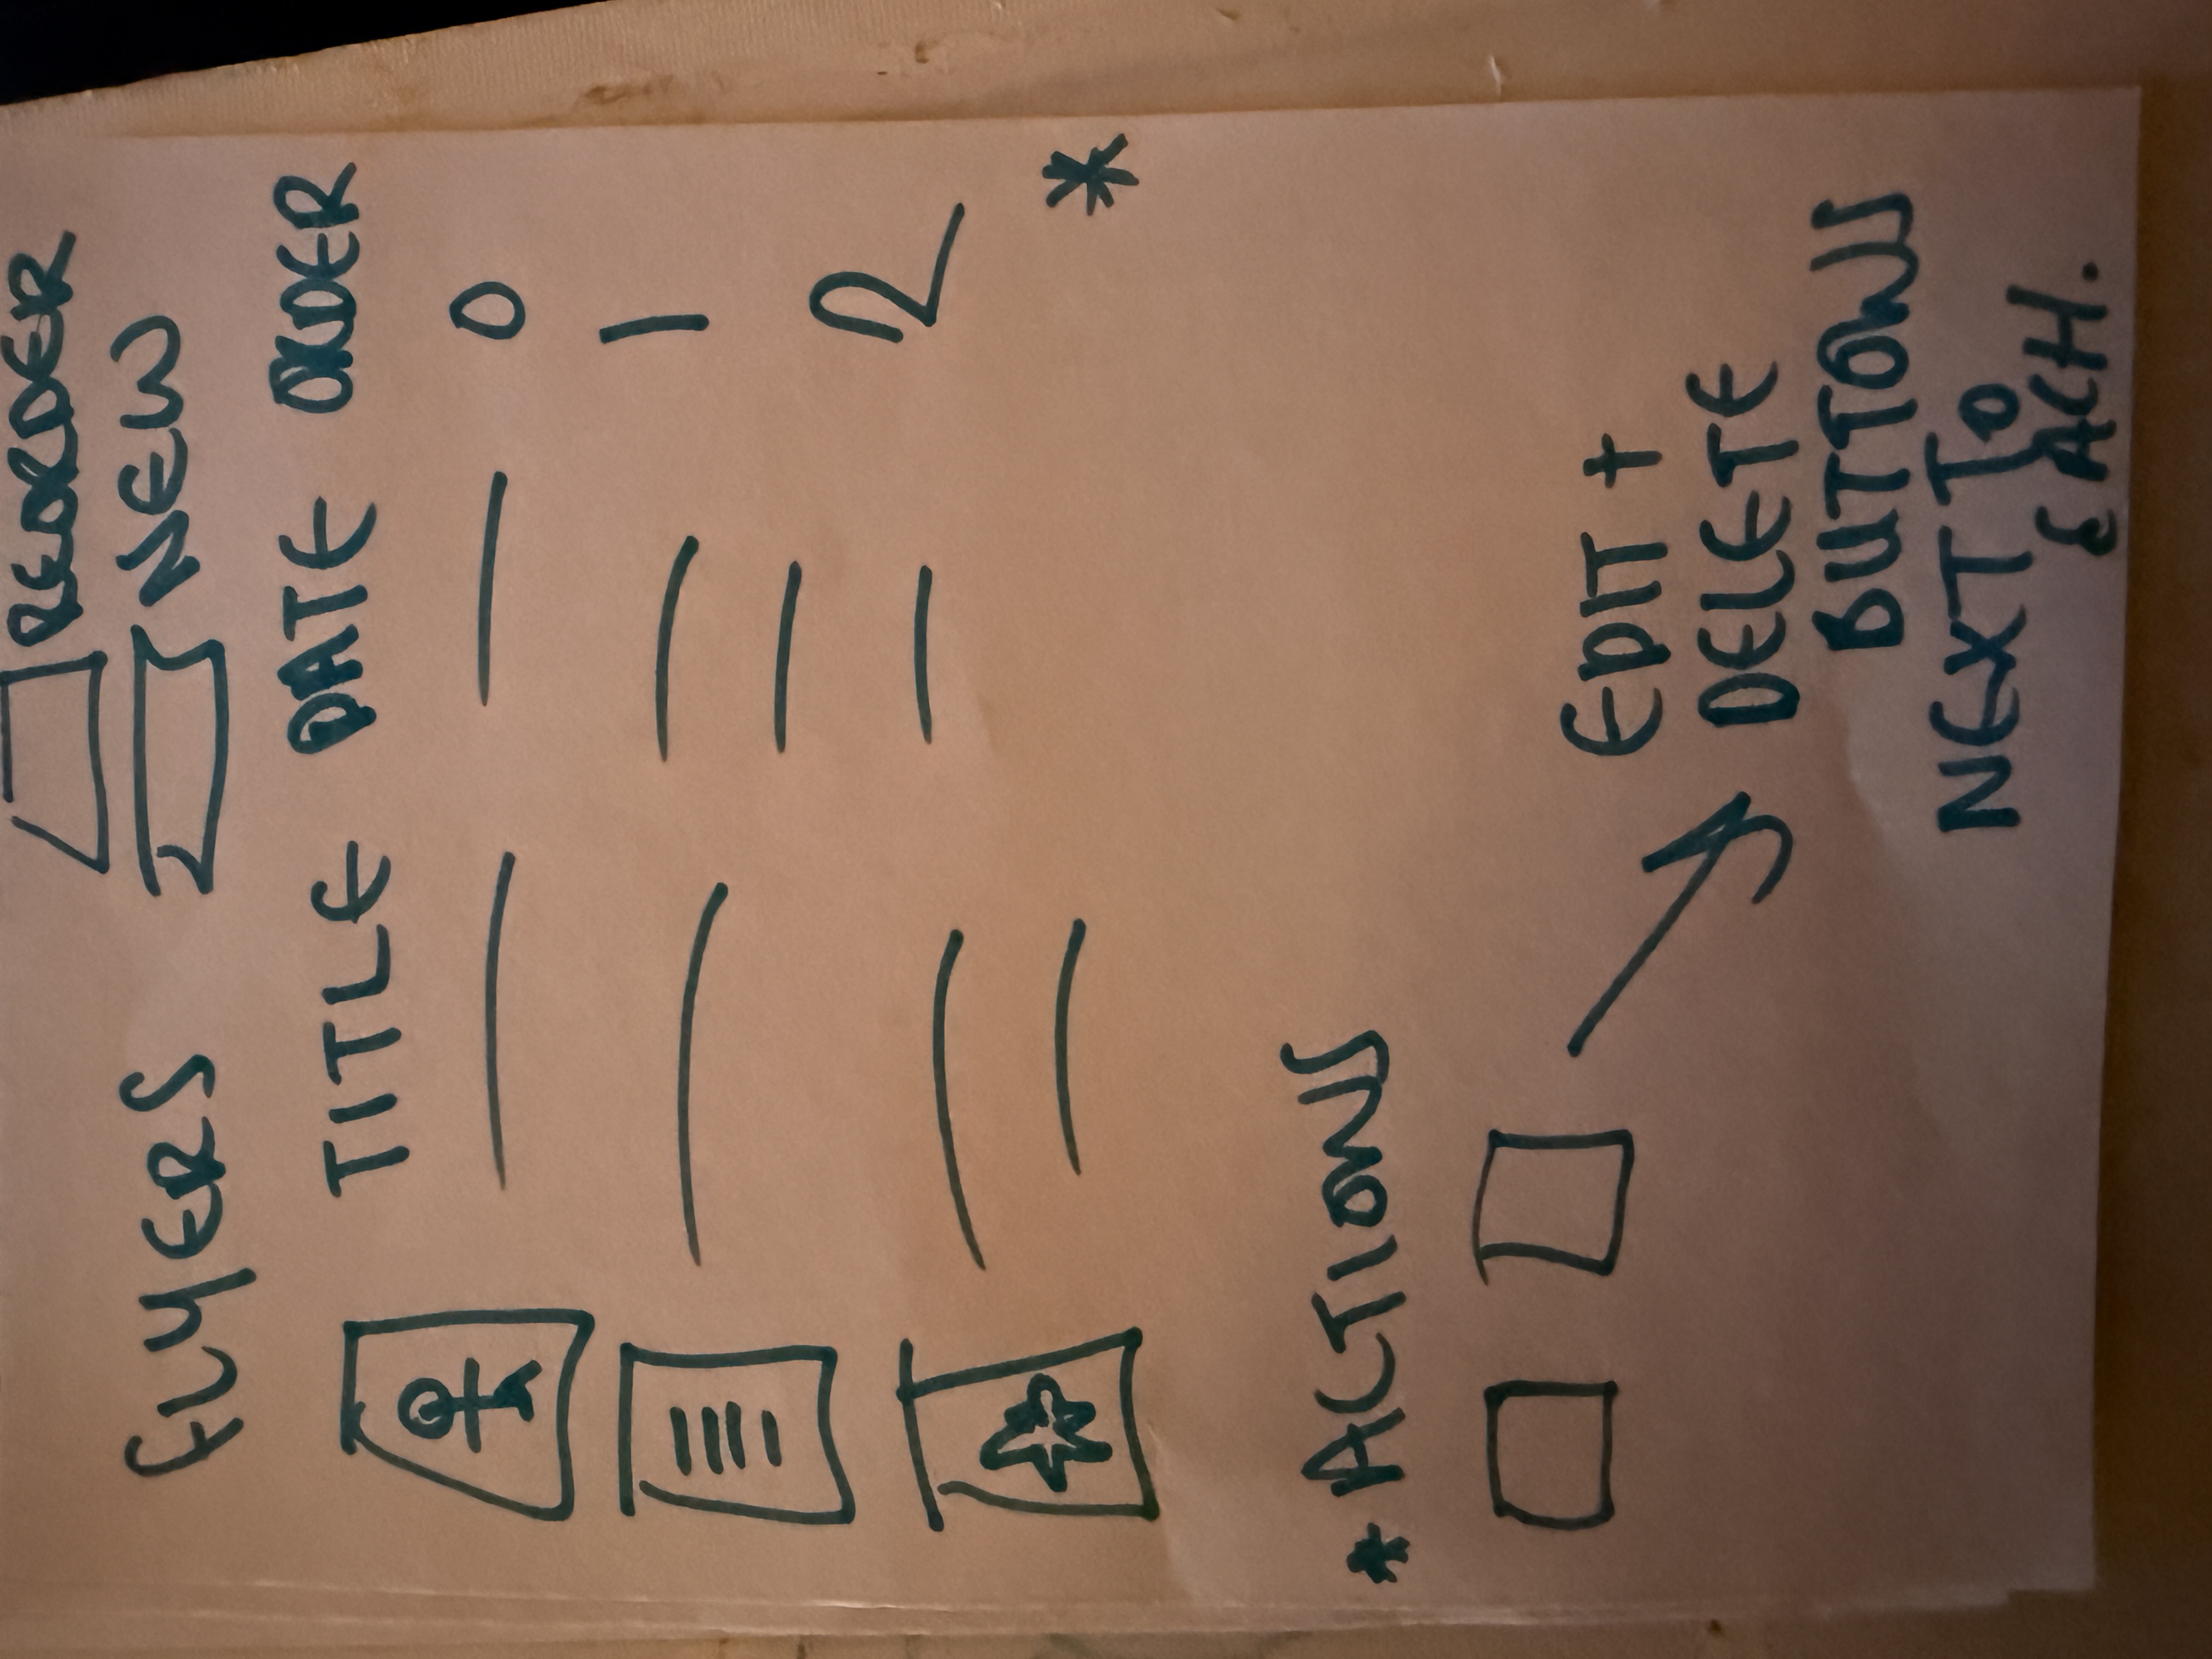 REORDER
FLYERS NEW
TITLE DATE ORDER
0
1
2
*
* ACTIONS
EDIT +
DELETE
BUTTONS
NEXT TO
EACH.